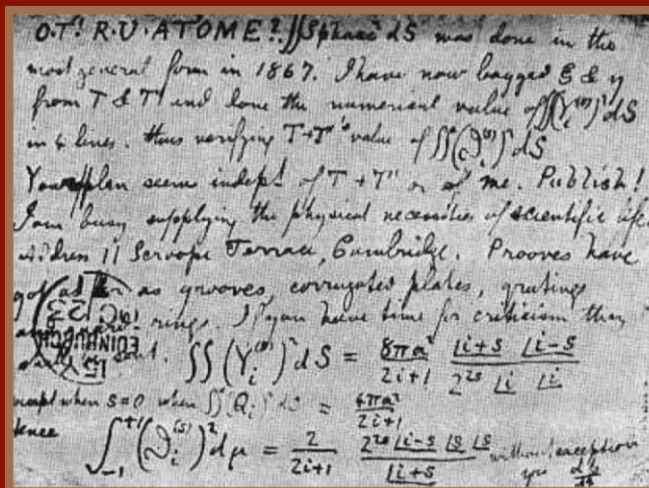 O.T'! R.U. AT OME? ∬Spharc² dS was done in the
most general form in 1867. I have now bagged ξ & η
from T & T' and done the numerical value of ∬(Y_i^(s))² dS
in 4 lines. thus verifying T+T''s value of ∬(ϑ_i^(s))² dS
Your plan seems indept of T+T' or of me. Publish!
I am busy supplying the physical necessities of scientific life
Address 11 Scroope Terrace, Cambridge. Prooves have
got as far as grooves, corrugated plates, gratings
rings. If you have time for criticism they
sent. ∬(Y_i^(s))² dS = 8πa²/(2i+1) |i+s |i-s / 2^2s |i |i
EDINBURGH
except when s=0 when ∬(Q_i)² dS = 4πa²/(2i+1)
hence ∫_-1^+1 (ϑ_i^(s))² dμ = 2/(2i+1) 2^2s |i-s |s |s / |i+s without exception
yrs dp/dt